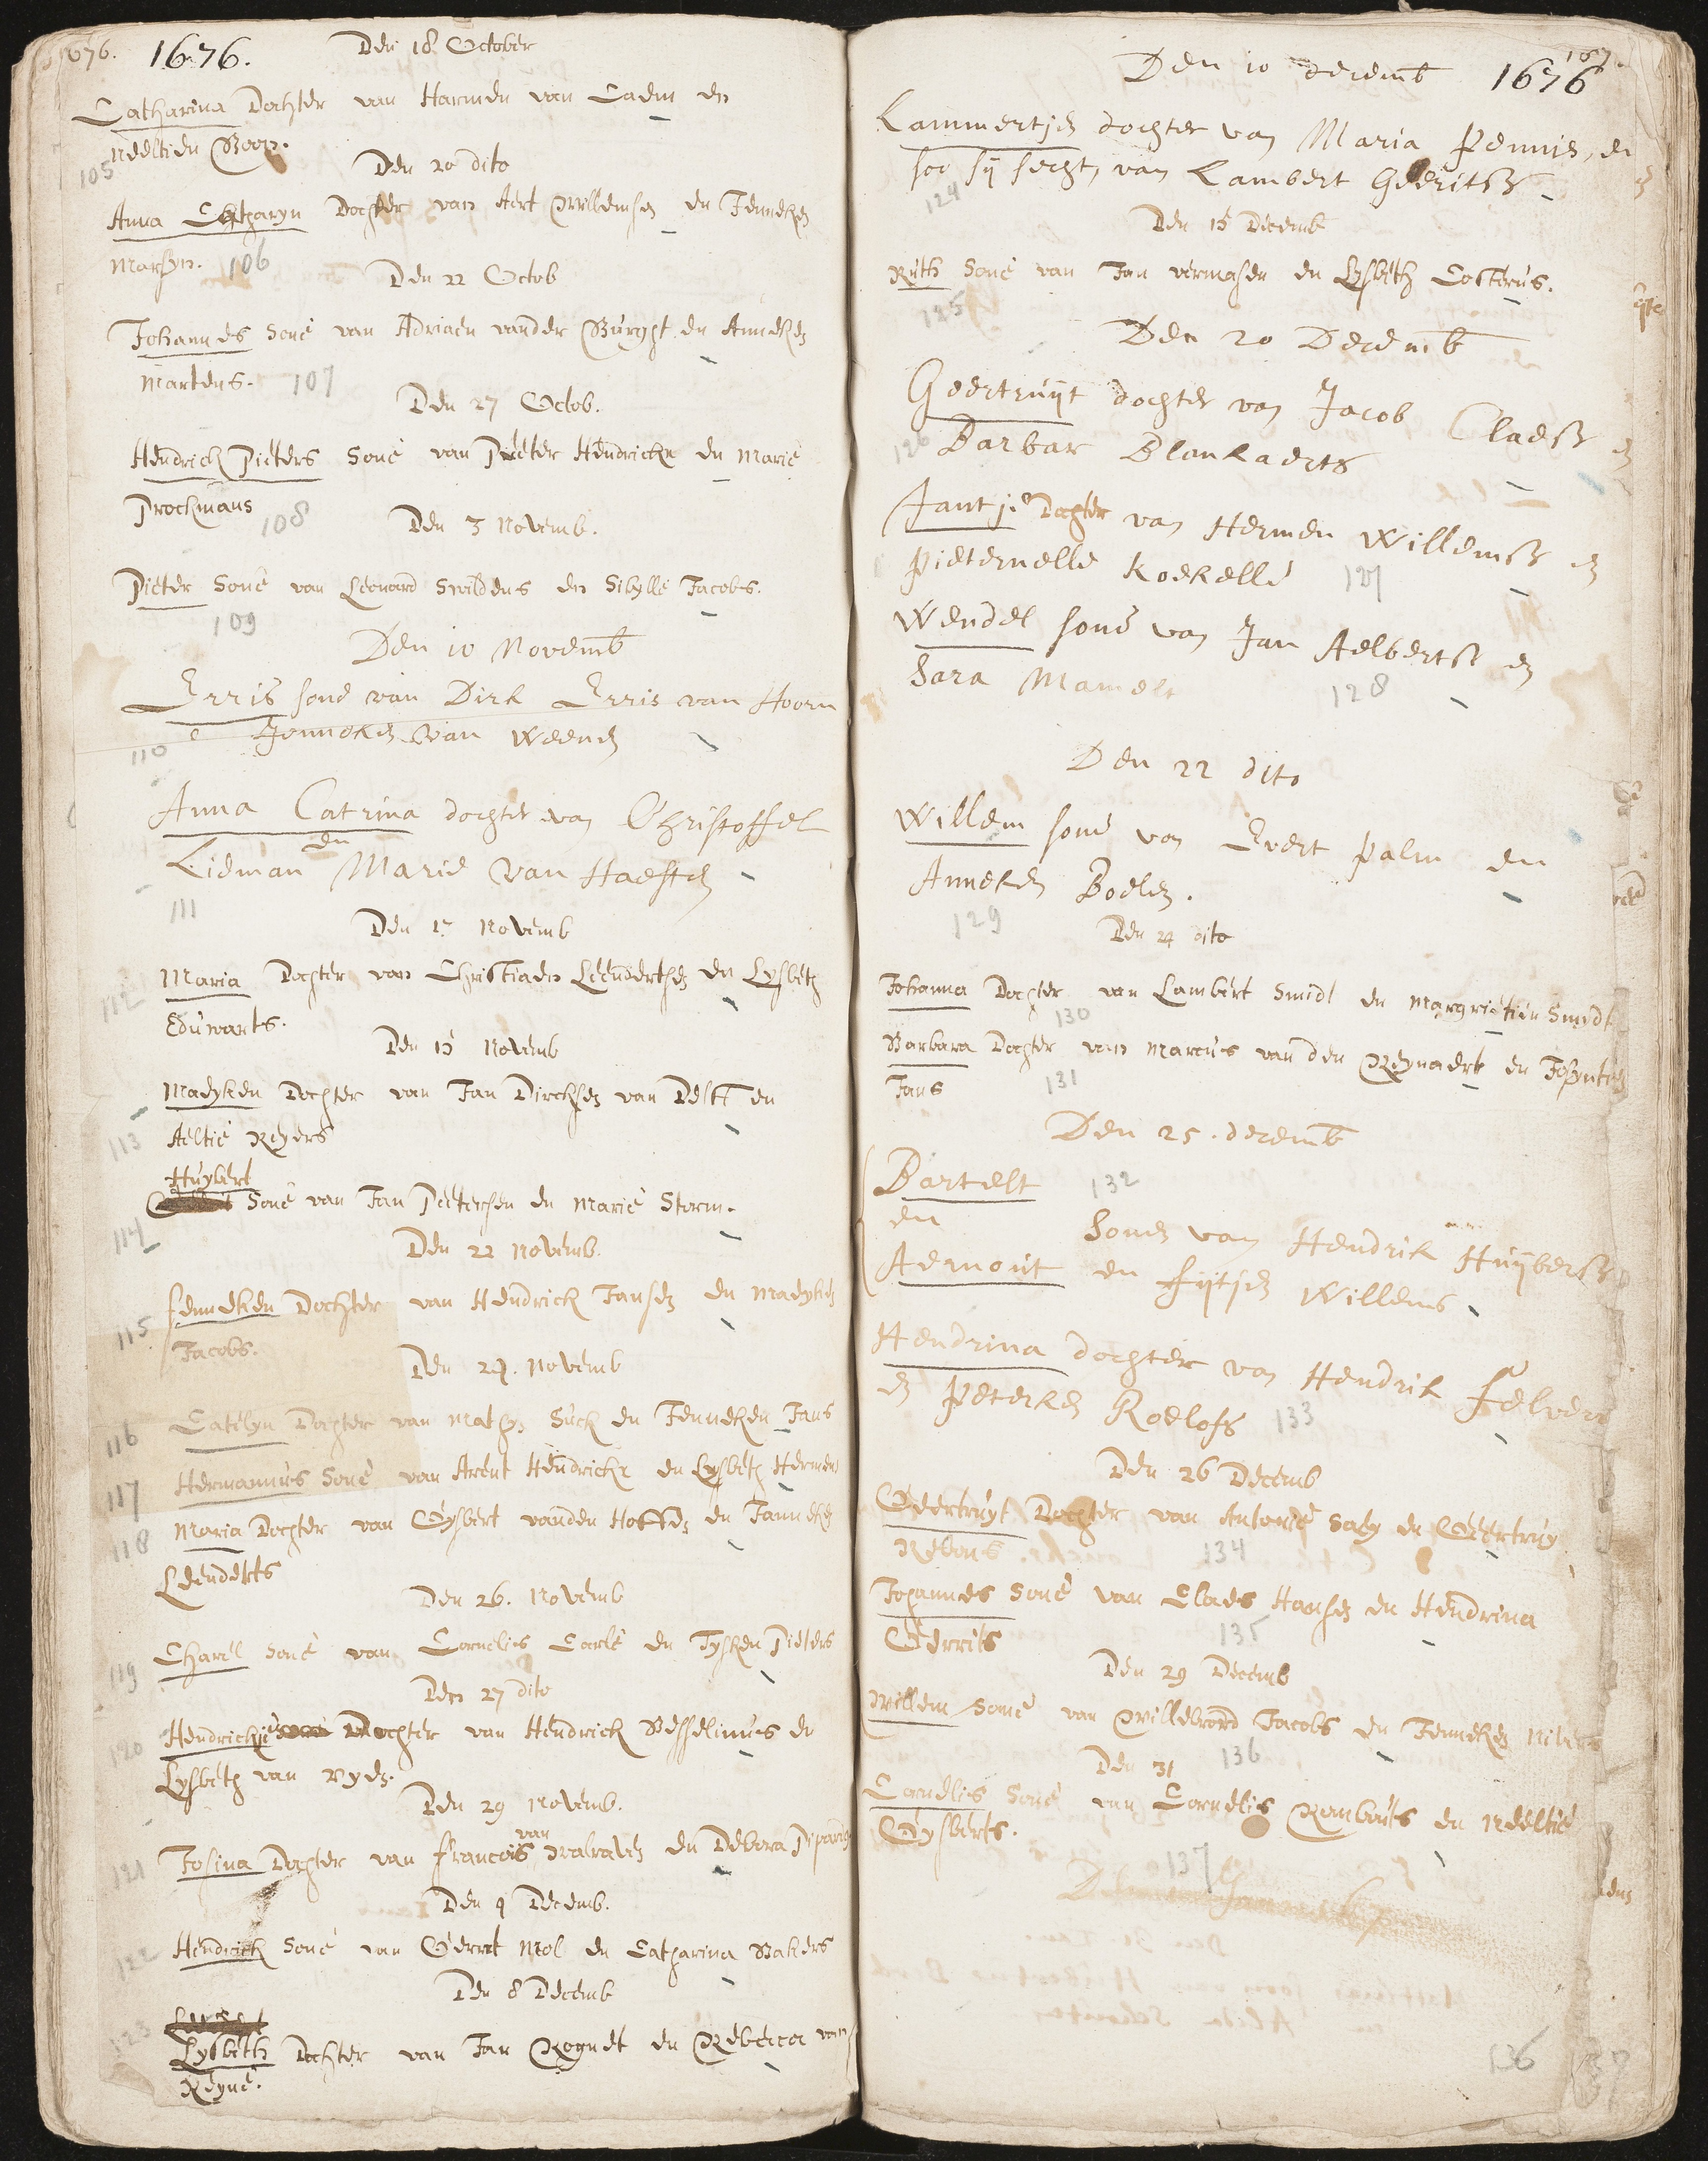 1676. Den 18 October
Catharina Dochter van Harmen van Caem en
Neeltien Boon.
105
Den 20 dito
Anna Catharyn Dochter van Aert Willemsen en Jenneken
Marsyn. 106
Den 22 Octob
Johannes Sone van Adriaen vander Burght en Anneken
Martens. 107
Den 27 Octob.
Hendrick Pieters Sone van Pieter Hendrickx en Marie
Prockmans 108
Den 3 Novemb.
Pieter Sone van Leonard Swildens en Sibylle Jacobs.
109
Den 10 Novemb
Erris sone van Dirk Erris van Hoorn
e Jenneken van Weenen
110
Anna Catrina dochter van Christoffel
Lieman en Marie van Haeften
111
Den 15 Novemb
Maria Dochter van Christiaen Leendertsen en Lysbeth
112
Eduwarts.
Den 15 Novemb
Madyken Dochter van Jan Dircksen van Delft en
113 Aeltie Reyers
Huybert
Sone van Jan Petersen en Marie Storm.
114
Den 22 Novemb.
Jenneken Dochter van Hendrick Jansen en Madyken
115 Jacobs.
Den 24. Novemb
116 Catelyn Dochter van Mathys Suck en Jenneken Jans
117 Hermannus Sone van Arent Hendrickx en Lysbeth Hermens
118 Maria Dochter van Gysbert vanden Hoffen en Janneken
Leenderts
Den 26. Novemb
119 Charel Sone van Cornelis Carle en Tysken Pieters
Den 27 dito
120 Hendrickie Dochter van Hendrick Besselinus en
Lysbeth van Ryden.
Den 29 Novemb.
van
121 Josina Dochter van Francois Walraven en Debora
Den 4 Decemb.
122 Hendrick Sone van Gerret Mol en Catharina Bakers
Den 8 Decemb
123 Lysbeth Dochter van Jan Reynet en Rebecca van
Reyne.
Den 10 decemb 1676
Lammertjen dochter van Maria Pennis, en
soo sij secht, van Lambert Geeritss
124
Den 15 Decemb
Ruth Sone van Jan Vermasen en Lysbeth Costerus.
125
Den 20 Decemb
Geertruijt dochter van Jacob Claess en
126 Barbar Blankaerts
Jantje Dochter van Hermen Willemss en
Pieternelle Koekelle 127
Wendel sone van Jan Aelbertss en
Sara Mamelt 128
Den 22 dito
Willem sone van Evert Palm en
Anneken Boelen.
129
Den 24 dito
Johanna Dochter van Lambert Smidt en Margrietien Smidt
130
Barbara Dochter van Marcus van den Reynaert en Josynten
Jans 131
Den 25. decemb
Bartelt 132
en Sonen van Hendrik Huijberss
Aernout en Fijtjen Willems
Hendrina dochter van Hendrik Felvers
en Peterken Roelofs 133
Den 26 Decemb
Geertruyt Dochter van Antonie Saly en Geertruy
134
Johannes Sone van Claes Hansen en Hendrina
Gerrits 135
Den 29 Decemb
Willem Sone van Willebrord Jacobs en Jenneken
Den 31 136
Cornelis Sone van Cornelis Rombouts en Neeltie
Gysberts.
137
136 137